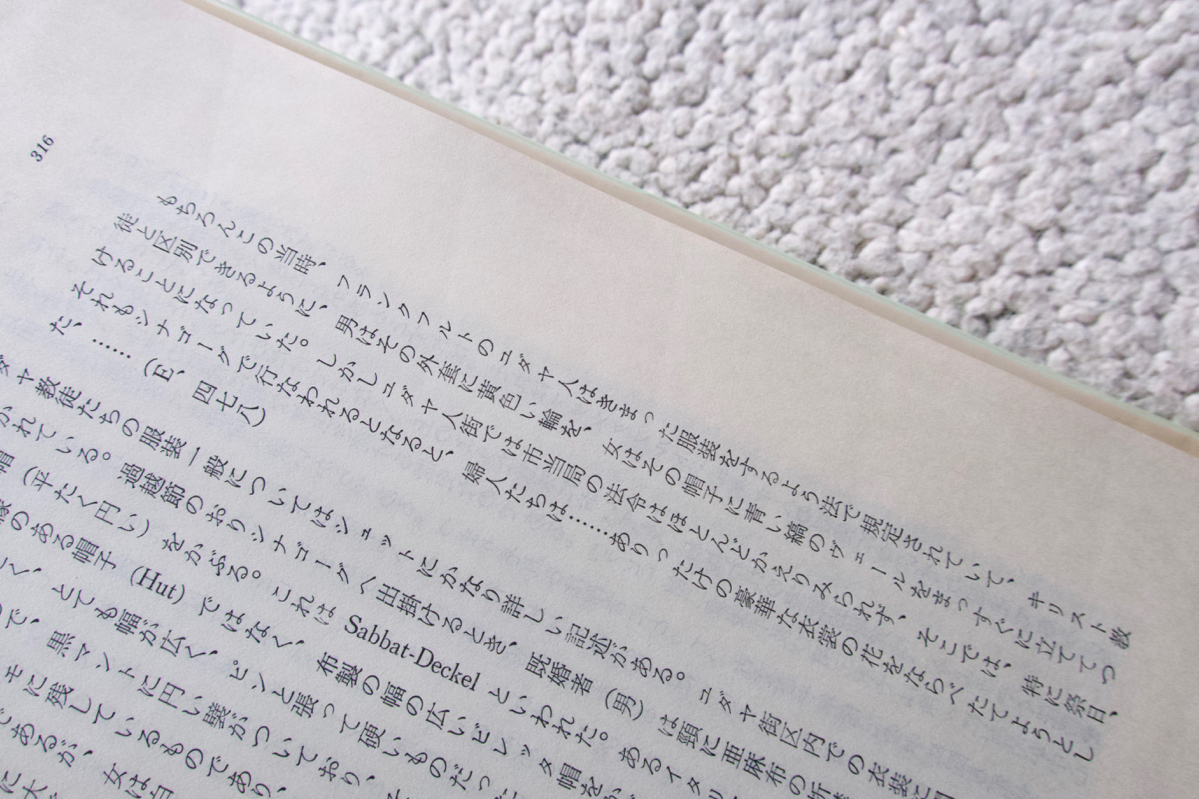 316
もちろんこの当時、フランクフルトのユダヤ人はきまった服装をするよう法で規定されていて、キリスト教
徒と区別できるように、男はその外套に黄色い輪を、女はその帽子に青い縞のヴェールをまっすぐに立ててつ
けることになっていた。しかしユダヤ人街では市当局の法令はほとんどかえりみられず、そこでは、特に祭日、
それもシナゴーグで行なわれるとなると、婦人たちは……ありったけの豪華な衣裳の花をならべたてようとし
た、……（E、四七八）
ダヤ教徒たちの服装一般についてはシュットにかなり詳しい記述がある。ユダヤ街区内での衣裳に
かれている。過越節のおりシナゴーグへ出掛けるとき、既婚者（男）は頸に亜麻布の
帽（平たく円い）をかぶる。これは Sabbat-Deckel といわれた。あるイタリ
縁のある帽子（Hut）ではなく、布製の幅の広いビレッタ帽をか
く、とても幅が広く、ピンと張って硬いものだっ
で、黒マントに円い襞がついており、
モに残しているものであり、
であるが、女は白
に大